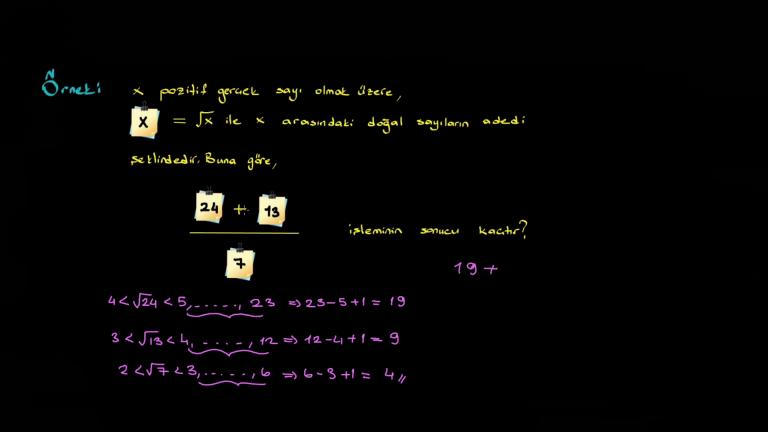 Örnek:
x pozitif gerçek sayı olmak üzere,
x = √x ile x arasındaki doğal sayıların adedi
şeklindedir. Buna göre,
24 + 13
7
işleminin sonucu kaçtır?
19 +
4 < √24 < 5, ....., 23 ⇒ 23-5+1 = 19
3 < √13 < 4, ....., 12 ⇒ 12-4+1 = 9
2 < √7 < 3, ....., 6 ⇒ 6-3+1 = 4 //